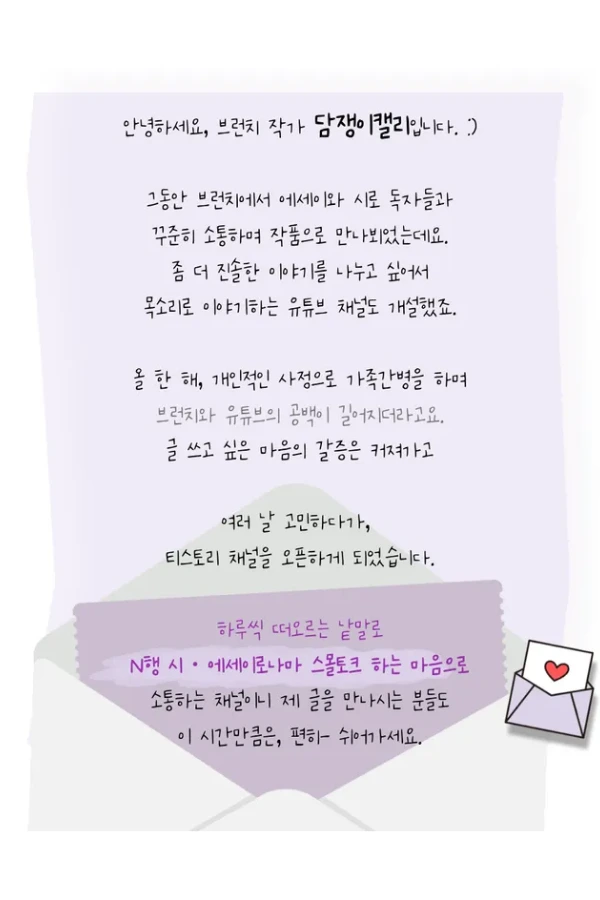 안녕하세요, 브런치 작가 담쟁이캘리입니다. :)
그동안 브런치에서 에세이와 시로 독자들과
꾸준히 소통하며 작품으로 만나뵈었는데요.
좀 더 진솔한 이야기를 나누고 싶어서
목소리로 이야기하는 유튜브 채널도 개설했죠.
올 한 해, 개인적인 사정으로 가족간병을 하며
브런치와 유튜브의 공백이 길어지더라고요.
글 쓰고 싶은 마음의 갈증은 커져가고
여러 날 고민하다가,
티스토리 채널을 오픈하게 되었습니다.
하루씩 떠오르는 낱말로
N행 시 · 에세이로나마 스몰토크 하는 마음으로
소통하는 채널이니 제 글을 만나시는 분들도
이 시간만큼은, 편히- 쉬어가세요.